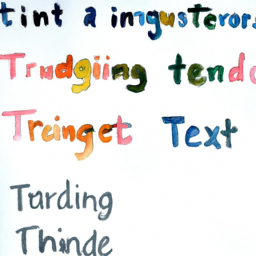 tint a ingusterors
Trudgiing tendo
Treinget Text
Turding
Thinde